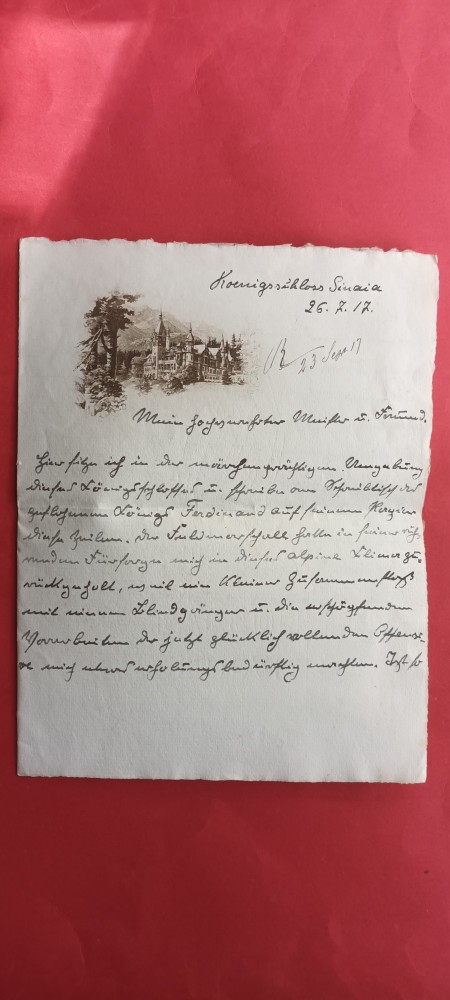 Koenigsschloss Sinaia
26. 7. 17.
23 Sept 17
Mein hochverehrter Meister u. Freund.
Hier sitze ich in der märchenprächtigen Umgebung
dieses Königsschlosses u. schreibe am Schreibtisch des
geflohenen Königs Ferdinand auf seinem Papier
diese Zeilen. Der Feldmarschall hatte in seiner rüh-
renden Fürsorge mich in dieses alpine Klima zu-
rückgeholt, weil ein kleiner Zusammenstoß
mit einem Blindgänger u. die erschöpfenden
Vorarbeiten der jetzt glücklich vollendeten Offensi-
ve mich etwas erholungsbedürftig machten. Ist so